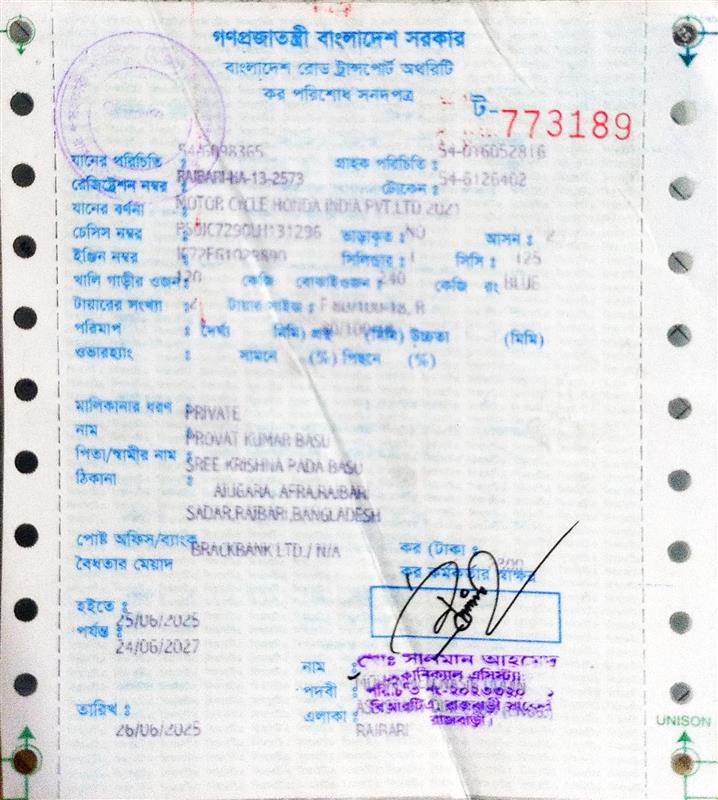 গণপ্রজাতন্ত্রী বাংলাদেশ সরকার
বাংলাদেশ রোড ট্রান্সপোর্ট অথরিটি
কর পরিশোধ সনদপত্র
ট-773189
যানের পরিচিতি : গ্রাহক পরিচিতি : 54-016052816
রেজিস্ট্রেশন নম্বর : RAJBARI-HA-13-2573 টোকেন : 54-6126402
যানের বর্ণনা : MOTOR CYCLE HONDA INDIA PVT.LTD 2021
চেসিস নম্বর : ভাড়াকৃত : NO আসন : 2
ইঞ্জিন নম্বর : সিলিন্ডার : 1 সিসি : 125
খালি গাড়ীর ওজন : 120 কেজি বোঝাইওজন : 240 কেজি রং BLUE
টায়ারের সংখ্যা : 2 টায়ার সাইজ :
পরিমাপ : দৈর্ঘ্য (মিমি) প্রস্থ (মিমি) উচ্চতা (মিমি)
ওভারহ্যাং : সামনে (%) পিছনে (%)
মালিকানার ধরণ : PRIVATE
নাম : PROVAT KUMAR BASU
পিতা/স্বামীর নাম : SREE KRISHNA PADA BASU
ঠিকানা : AFRA,RAJBARI
SADAR,RAJBARI,BANGLADESH
পোষ্ট অফিস/ব্যাংক BRACKBANK LTD./ N/A কর (টাকা :
বৈধতার মেয়াদ কর কর্মকর্তার স্বাক্ষর
হইতে : 25/06/2025
পর্যন্ত : 24/06/2027
নাম : মোঃ সালমান আহমেদ
পদবী :
এলাকা : RAJBARI
রাজবাড়ী।
তারিখ : 26/06/2025
UNISON